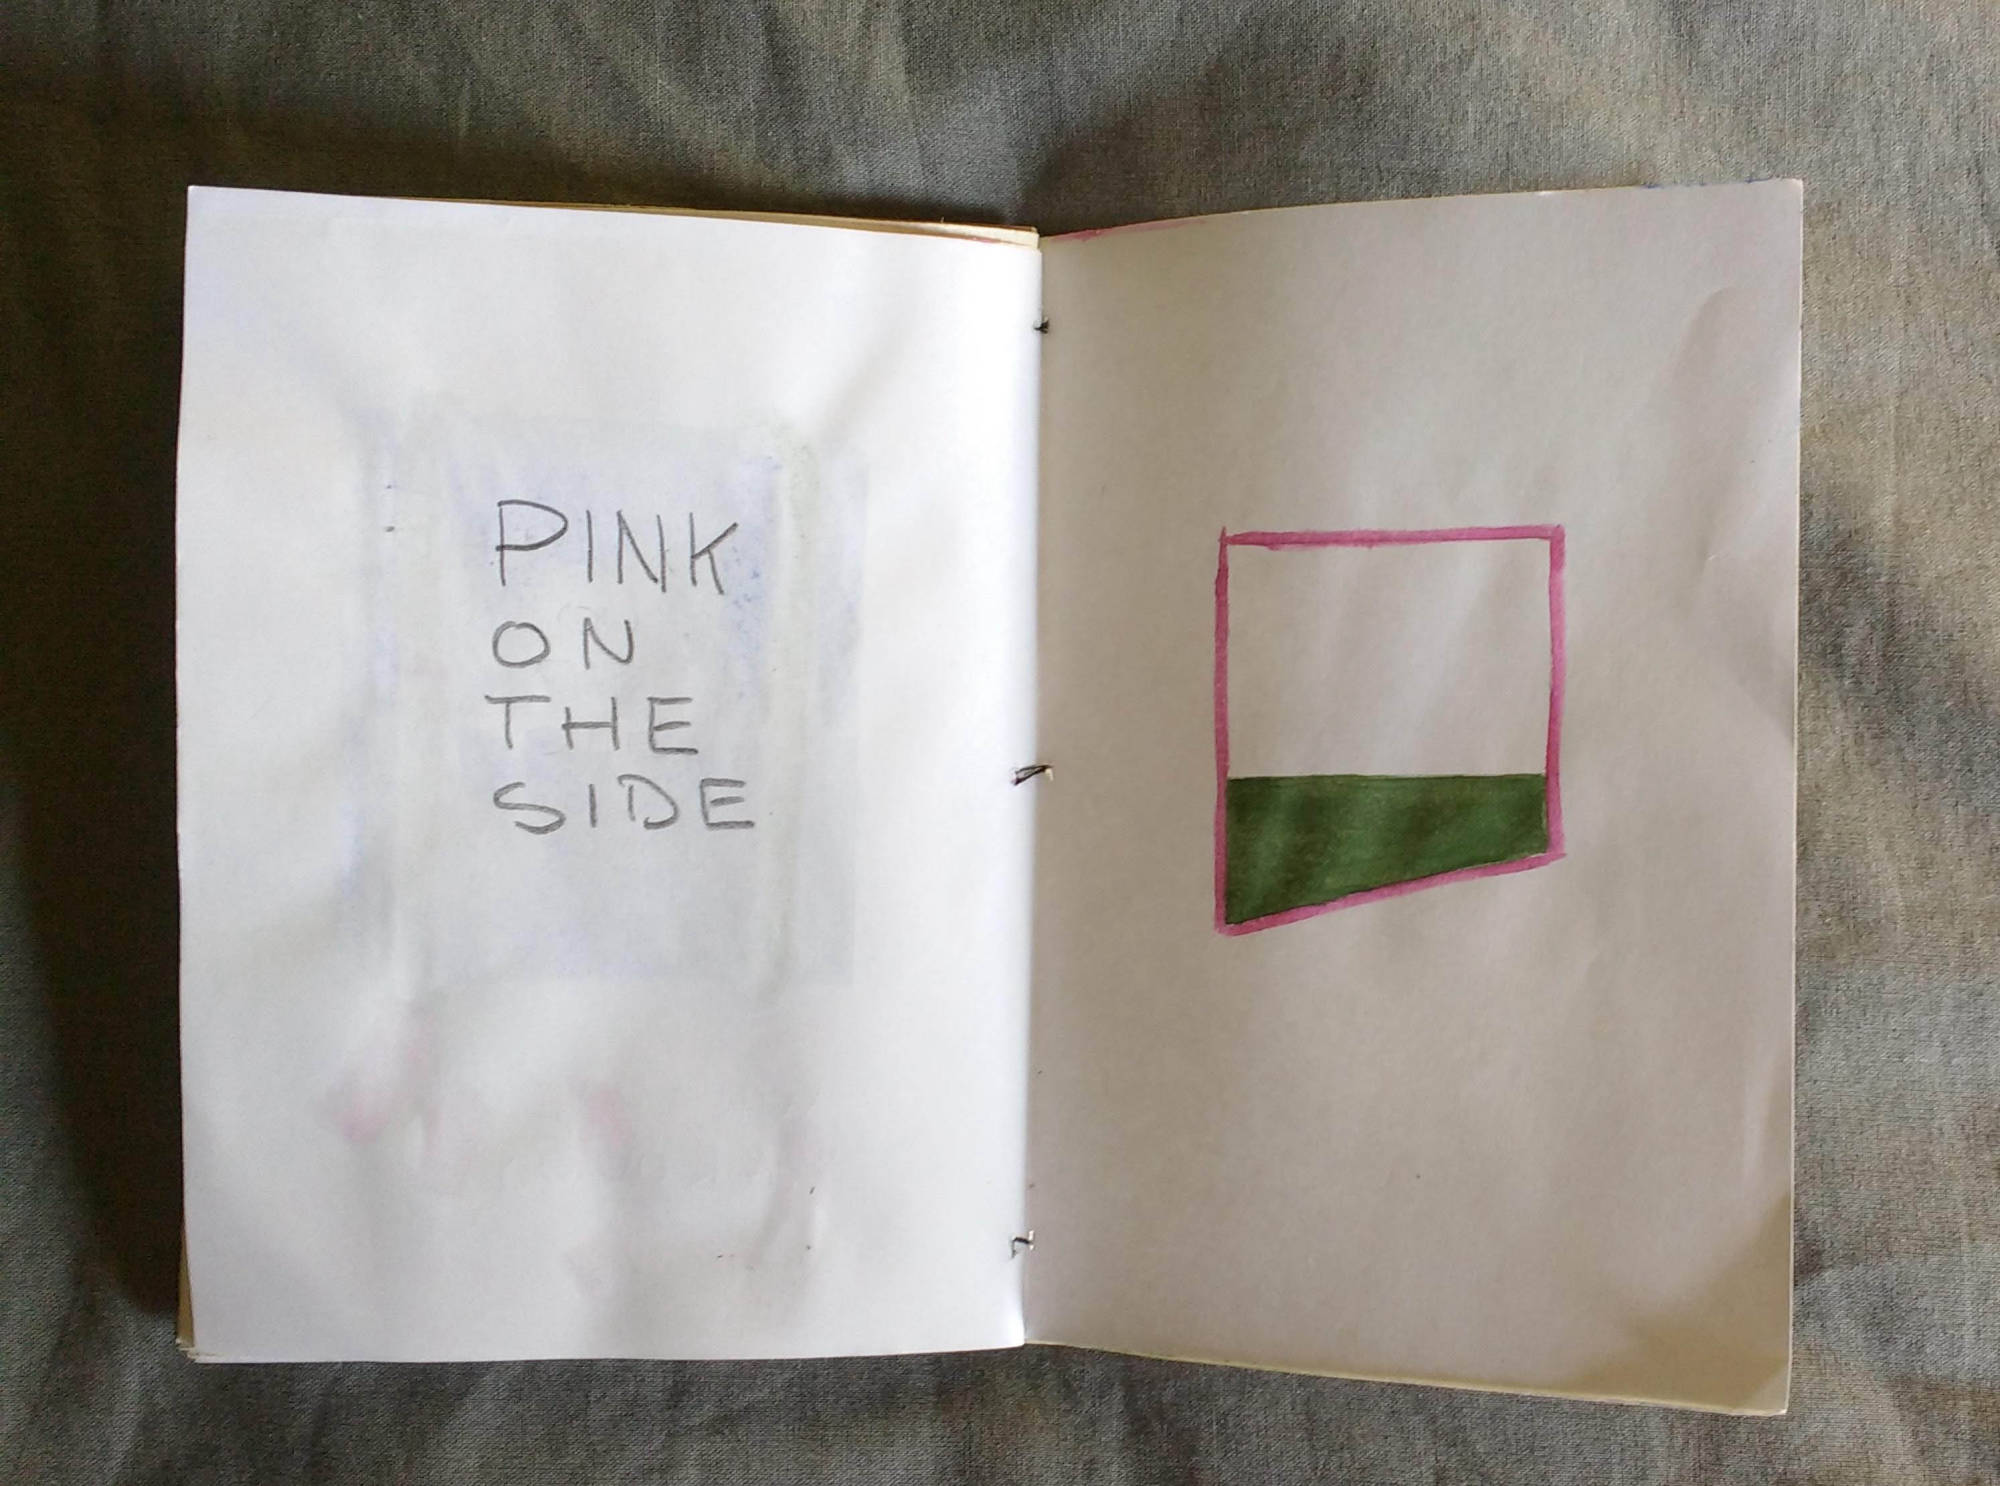 PINK
ON
THE
SIDE